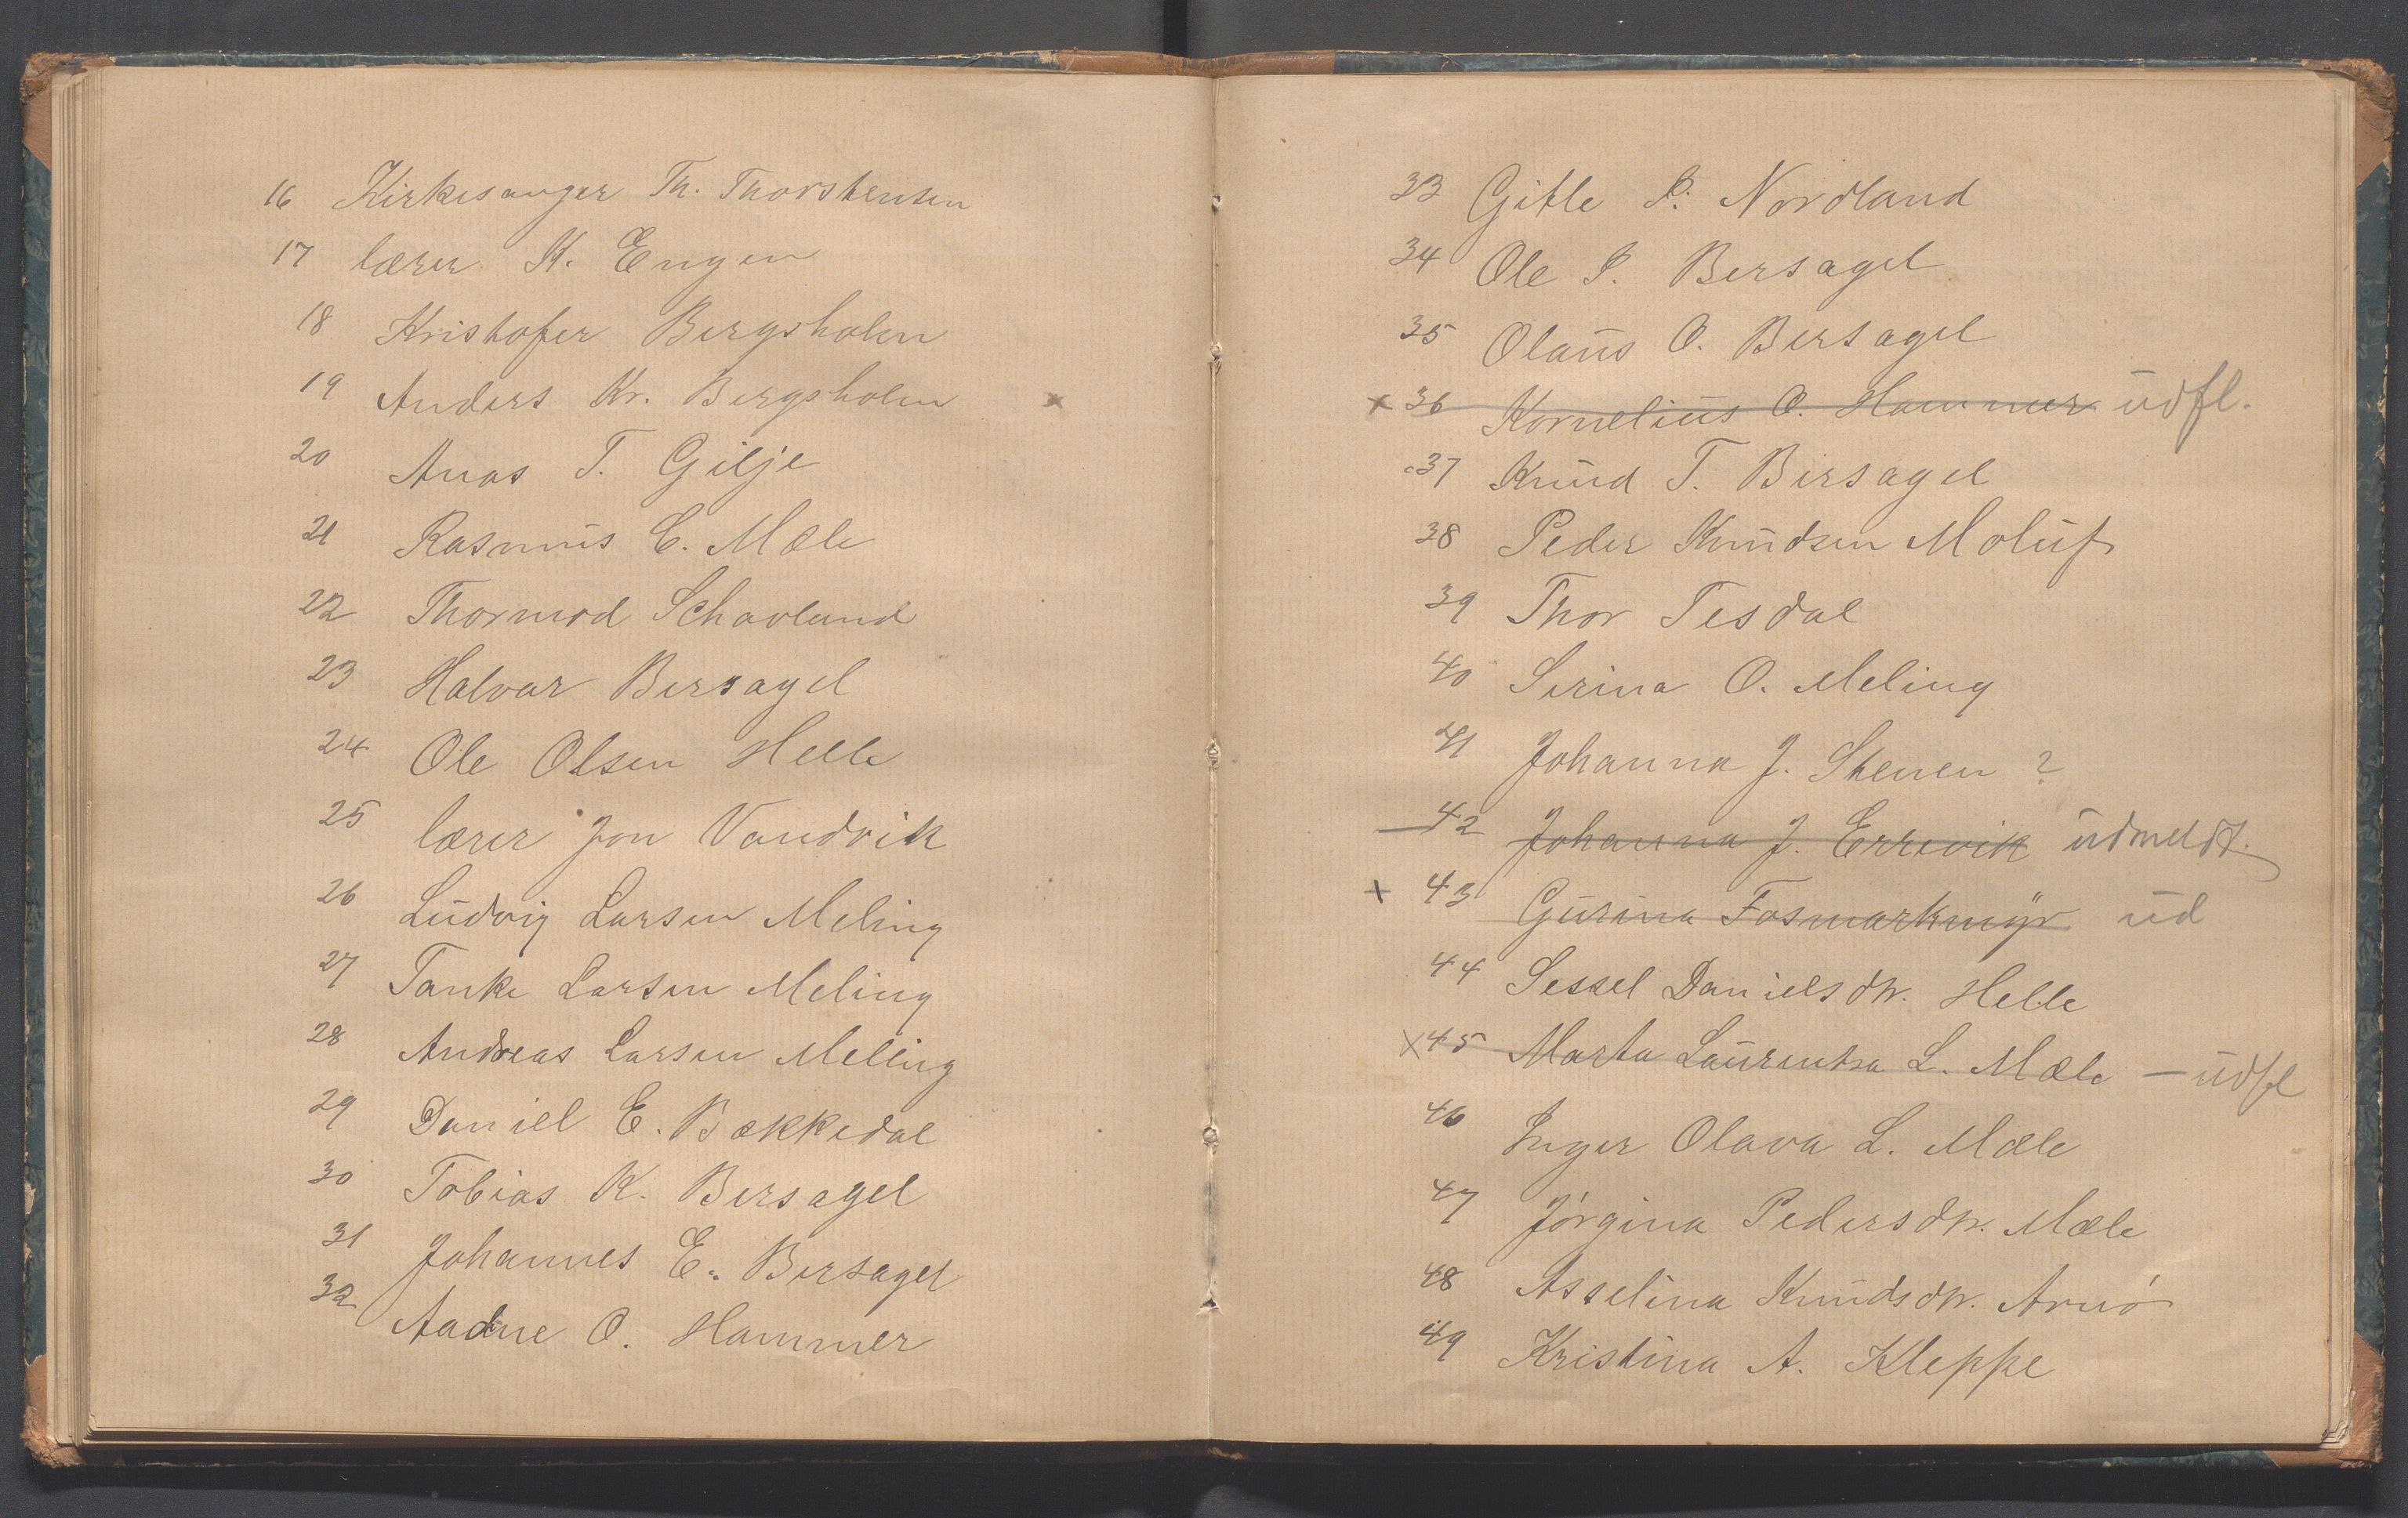 16 Kirkesanger Th. Thorstensen
17 lærer K. Engen
18 Kristofer Bergsholm
19 Anders Kr. Bergsholm x
20 Anas T. Gilje
21 Rasmus C. Mæle
22 Thormod Schavland
23 Halvar Bersagel
24 Ole Olsen Helle
25 lærer Jon Vandvik
26 Ludvig Larsen Meling
27 Tanke Larsen Meling
28 Andreas Larsen Meling
29 Daniel E. Bækkedal
30 Tobias K. Bersagel
31 Johannes E. Bersagel
32 Aadne O. Hammer
33 Gitle P. Nordland
34 Ole P. Bersagel
35 Olaus O. Bersagel
x 36 Kornelius O. Hammer udfl.
37 Knud T. Bersagel
38 Peder Knudsen Moluf
39 Thor Tesdal
40 Serina O. Meling
41 Johanna J. Stenen ?
42 Johanna J. Errevik udmeldt.
x 43 Gurina Fosmarkmyr ud
44 Sessel Danielsdtr. Helle
x 45 Marta Laurentza L. Mæle — udfl
46 Inger Olava L. Mæle
47 Jørgina Pedersdtr. Mæle
48 Asselina Knudsdtr. Arnø
49 Kristina A. Kleppe